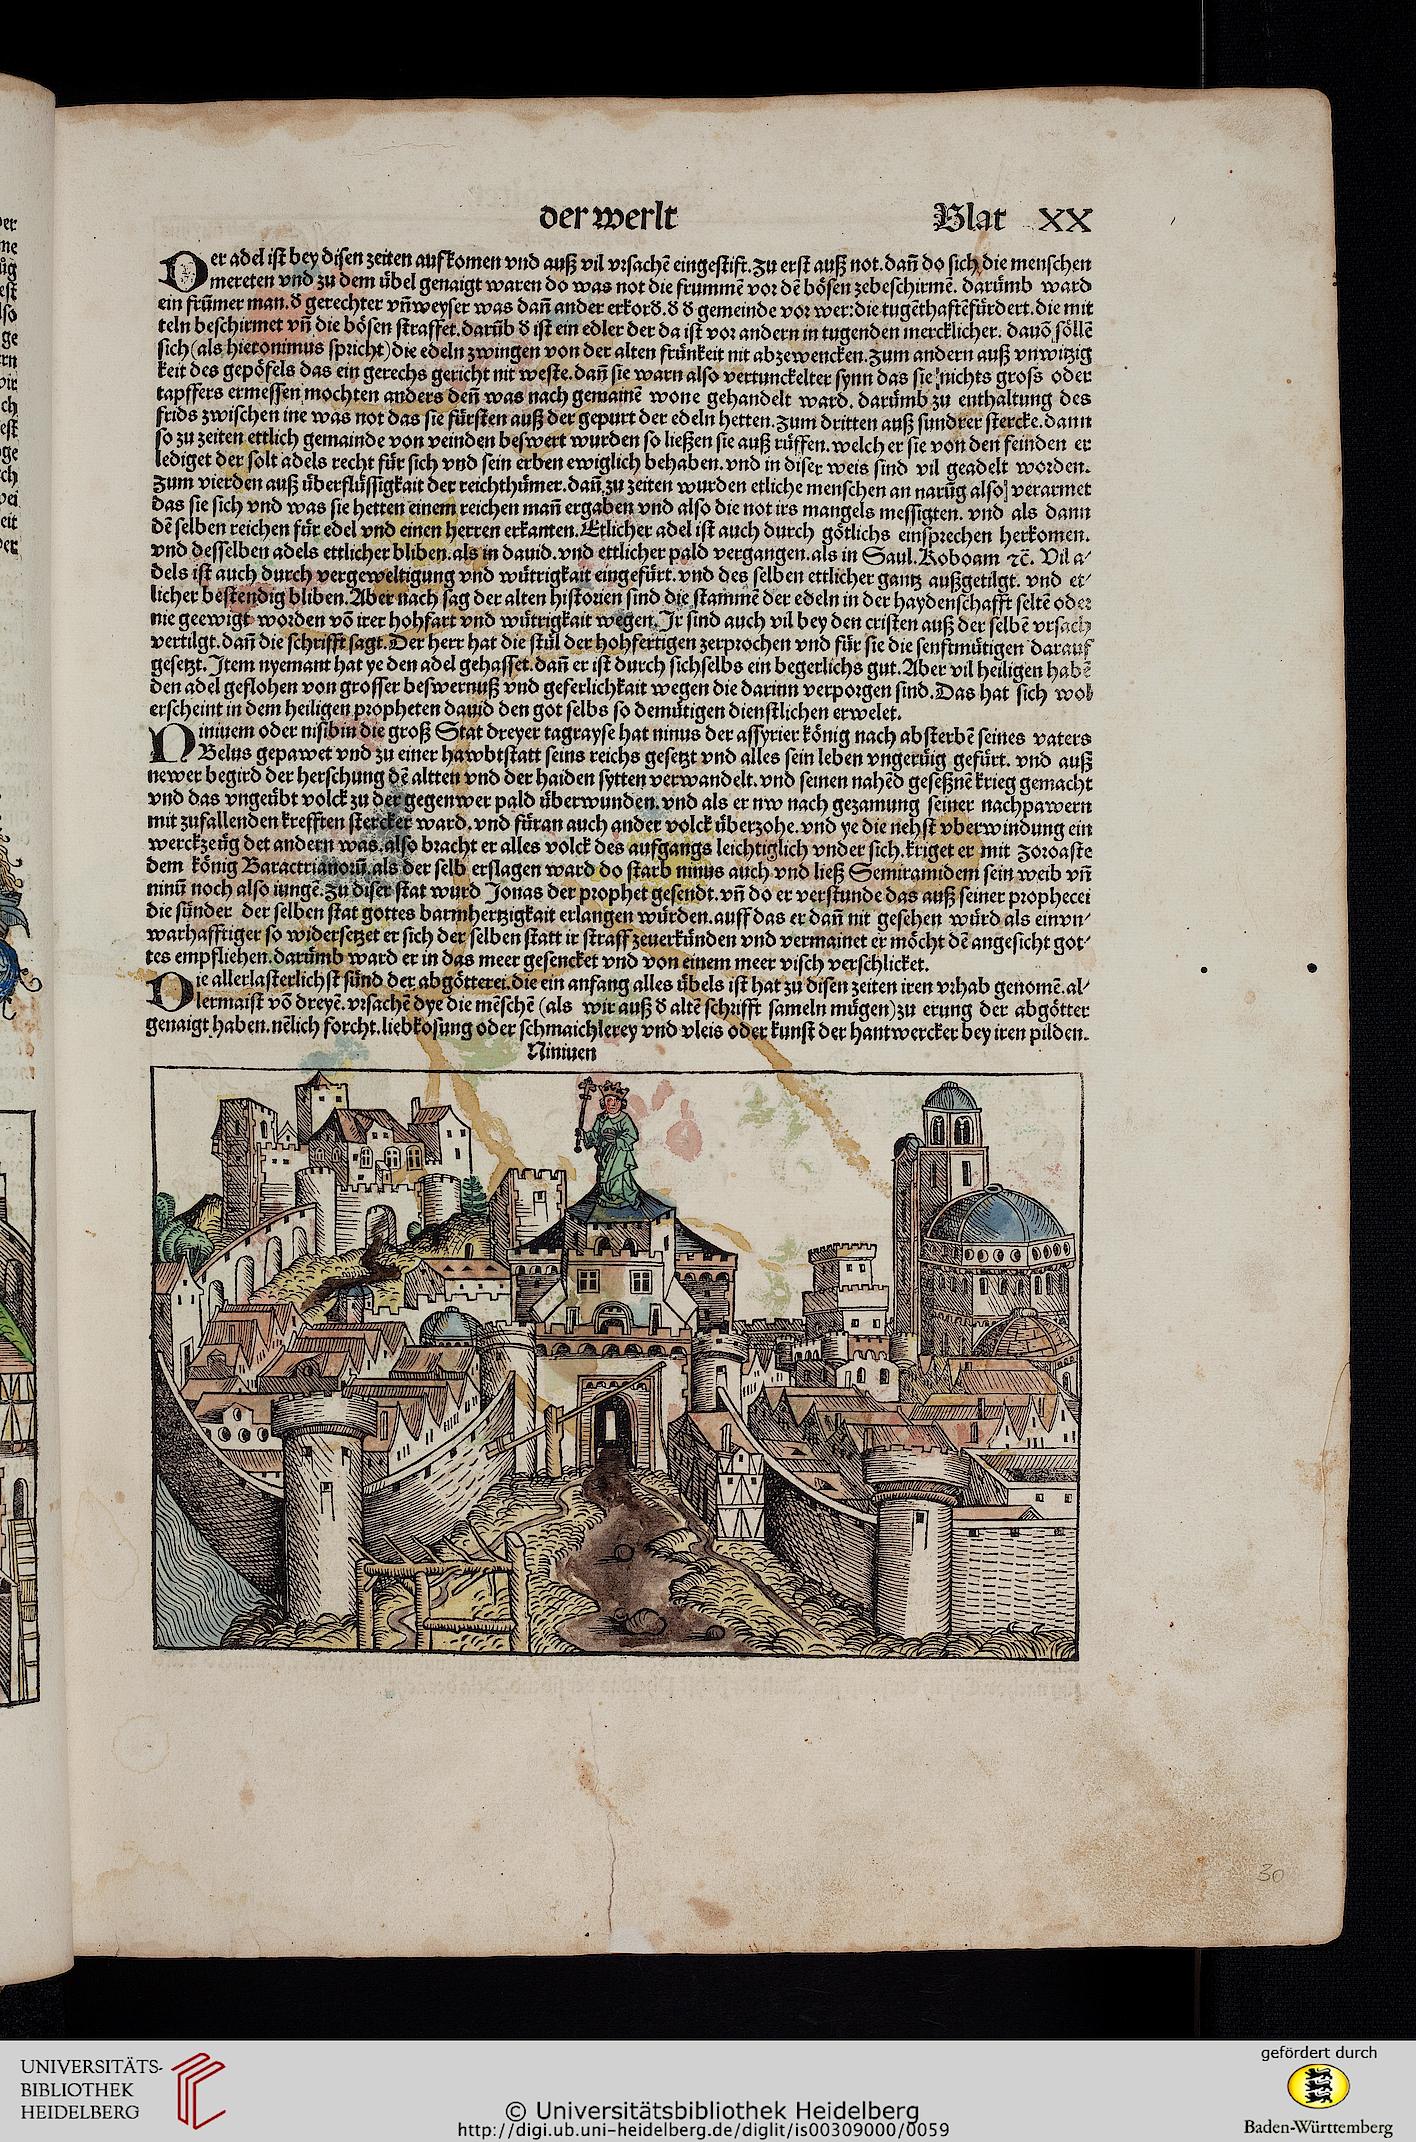 der werlt Blat XX
Der adel ist bey disen zeiten aufkomen vnd auß vil vrsachē eingestift. zu erst auß not. dañ do sich die menschen
mereten vnd zu dem übel genaigt waren do was not die frummē vor dē bösen zebeschirmē. darümb ward
ein frümer man. d gerechter vñ weyser was dañ ander erkord. d d gemeinde vor wer: die tugēthaftē fürdert. die mit
teln beschirmet vñ die bösen straffet. darüb d ist ein edler der da ist vor andern in tugenden mercklicher. dauō söllē
sich (als hieronimus spricht) die edeln zwingen von der alten frünkeit nit abzewencken. zum andern auß vnwitzig
keit des gepöfels das ein gerechs gericht nit weste. dañ sie warn also vertunckelter synn das sie nichts gross oder
tapffers ermessen mochten anders deñ was nach gemainē wone gehandelt ward. darümb zu enthaltung des
frids zwischen ine was not das sie fürsten auß der gepurt der edeln hetten. zum dritten auß sundrer stercke. dann
so zu zeiten ettlich gemainde von veinden beswert wurden so ließen sie auß rüffen. welcher sie von den feinden er
lediget der solt adels recht für sich vnd sein erben ewiglich behaben. vnd in diser weis sind vil geadelt worden.
zum vierden auß überflüssigkait der reichthümer. dañ zu zeiten wurden etliche menschen an narüg also verarmet
das sie sich vnd was sie hetten einem reichen mañ ergaben vnd also die not irs mangels messigten. vnd als dann
dē selben reichen für edel vnd einen herren erkanten. Etlicher adel ist auch durch götlichs einsprechen herkomen.
vnd desselben adels ettlicher bliben. als in dauid. vnd ettlicher pald vergangen. als in Saul. Roboam ⁊c̄. Vil a-
dels ist auch durch vergeweltigung vnd wütrigkait eingefürt. vnd des selben ettlicher gantz außgetilgt. vnd et-
licher bestendig bliben. Aber nach sag der alten historien sind die stammē der edeln in der haydenschafft seltē oder
nie geewigt worden vō irer hohfart vnd wütrigkait wegen. Ir sind auch vil bey den cristen auß der selbē vrsach
vertilgt. dañ die schrifft sagt. Der herr hat die stül der hohfertigen zerprochen vnd für sie die senftmütigen darauf
gesetzt. Item nyemant hat ye den adel gehasset. dañ er ist durch sichselbs ein begerlichs gut. Aber vil heiligen habē
den adel geflohen von grosser beswernuß vnd geferlichkait wegen die darinn verporgen sind. Das hat sich wol
erscheint in dem heiligen propheten dauid den got selbs so demütigen dienstlichen erwelet.
Niniuem oder nisibin die groß Stat dreyer tagrayse hat ninus der assyrier könig nach absterbē seines vaters
Belus gepawet vnd zu einer hawbtstatt seins reichs gesetzt vnd alles sein leben vngerüig gefürt. vnd auß
newer begird der herschung dē altten vnd der haiden sytten verwandelt. vnd seinen nahēd geseßnē krieg gemacht
vnd das vngeübt volck zu der gegenwer pald überwunden. vnd als er nw nach gezamung seiner nachpawern
mit zufallenden krefften stercker ward. vnd füran auch ander volck überzohe. vnd ye die nehst vberwindung ein
werckzeüg det andern was. also bracht er alles volck des aufgangs leichtiglich vnder sich. krieget er mit zoroaste
dem könig Baractrianorū. als der selb erslagen ward do starb ninus auch vnd ließ Semiramidem sein weib vñ
ninū noch also iungē. Zu diser stat wurd Jonas der prophet gesendt. vñ do er verstunde das auß seiner prophecei
die sünder der selben stat gottes barmhertzigkait erlangen würden. auff das er dañ nit gesehen würd als ein vn-
warhafftiger so widersetzet er sich der selben statt ir straff zeuerkünden vnd vermainet er möcht dē angesicht got-
tes empfliehen. darümb ward er in das meer gesencket vnd von einem meer visch verschlicket.
Die allerlasterlichst sünd der abgötterei. die ein anfang alles übels ist hat zu disen zeiten iren vrhab genomē. al-
lermaist vō dreyē. vrsachē dye die mēschē (als wir auß d altē schrifft sameln mügen) zu erung der abgötter
genaigt haben. nēlich forcht. liebkosung oder schmaichlerey vnd vleis oder kunst der hantwercker bey iren pilden.
Niniuen
30
UNIVERSITÄTS-
BIBLIOTHEK
HEIDELBERG
© Universitätsbibliothek Heidelberg
http://digi.ub.uni-heidelberg.de/diglit/is00309000/0059
gefördert durch
Baden-Württemberg